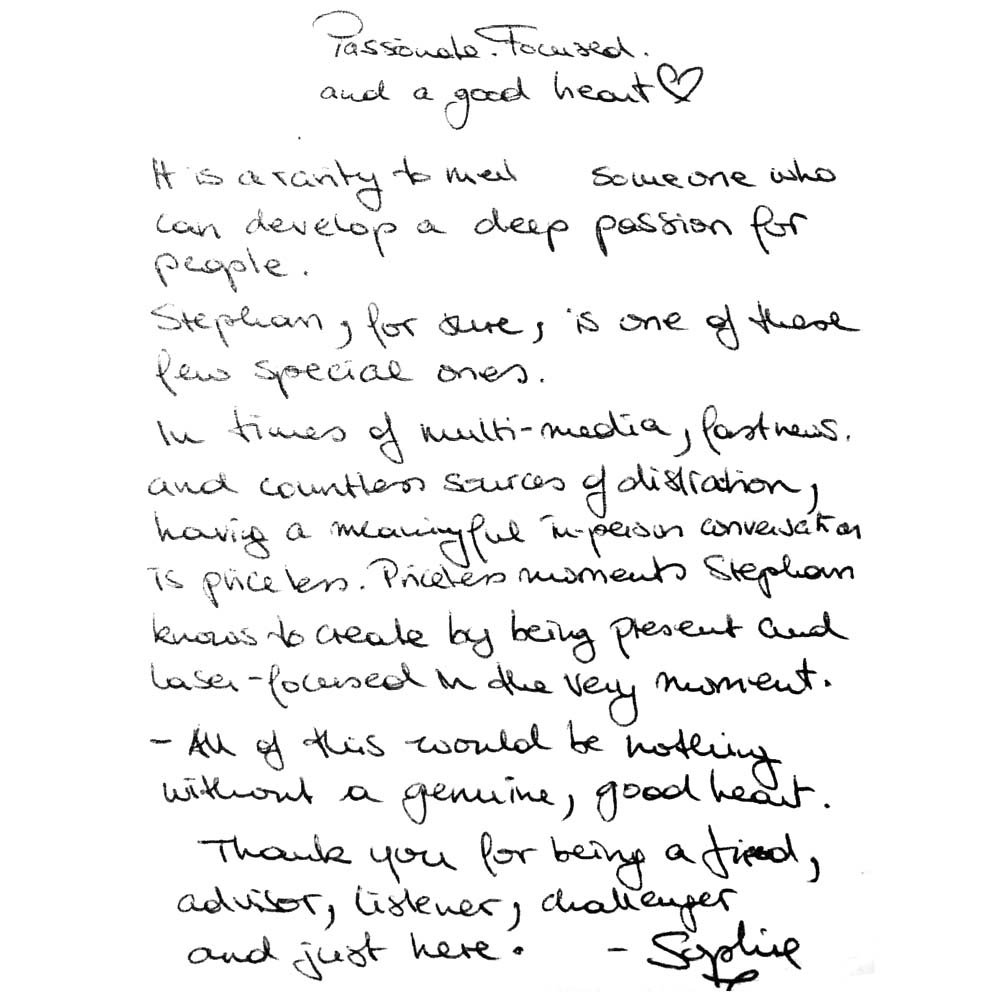 Passionate. Focused.
and a good heart ♡
It is a rarity to meet someone who
can develop a deep passion for
people.
Stephan, for sure, is one of these
few special ones.
In times of multi-media, fast news.
and countless sources of distraction,
having a meaningful in-person conversation
is priceless. Priceless moments Stephan
knows to create by being present and
laser-focused in the very moment.
- All of this would be nothing
without a genuine, good heart.
Thank you for being a friend,
advisor, listener, challenger
and just here. - Sophie